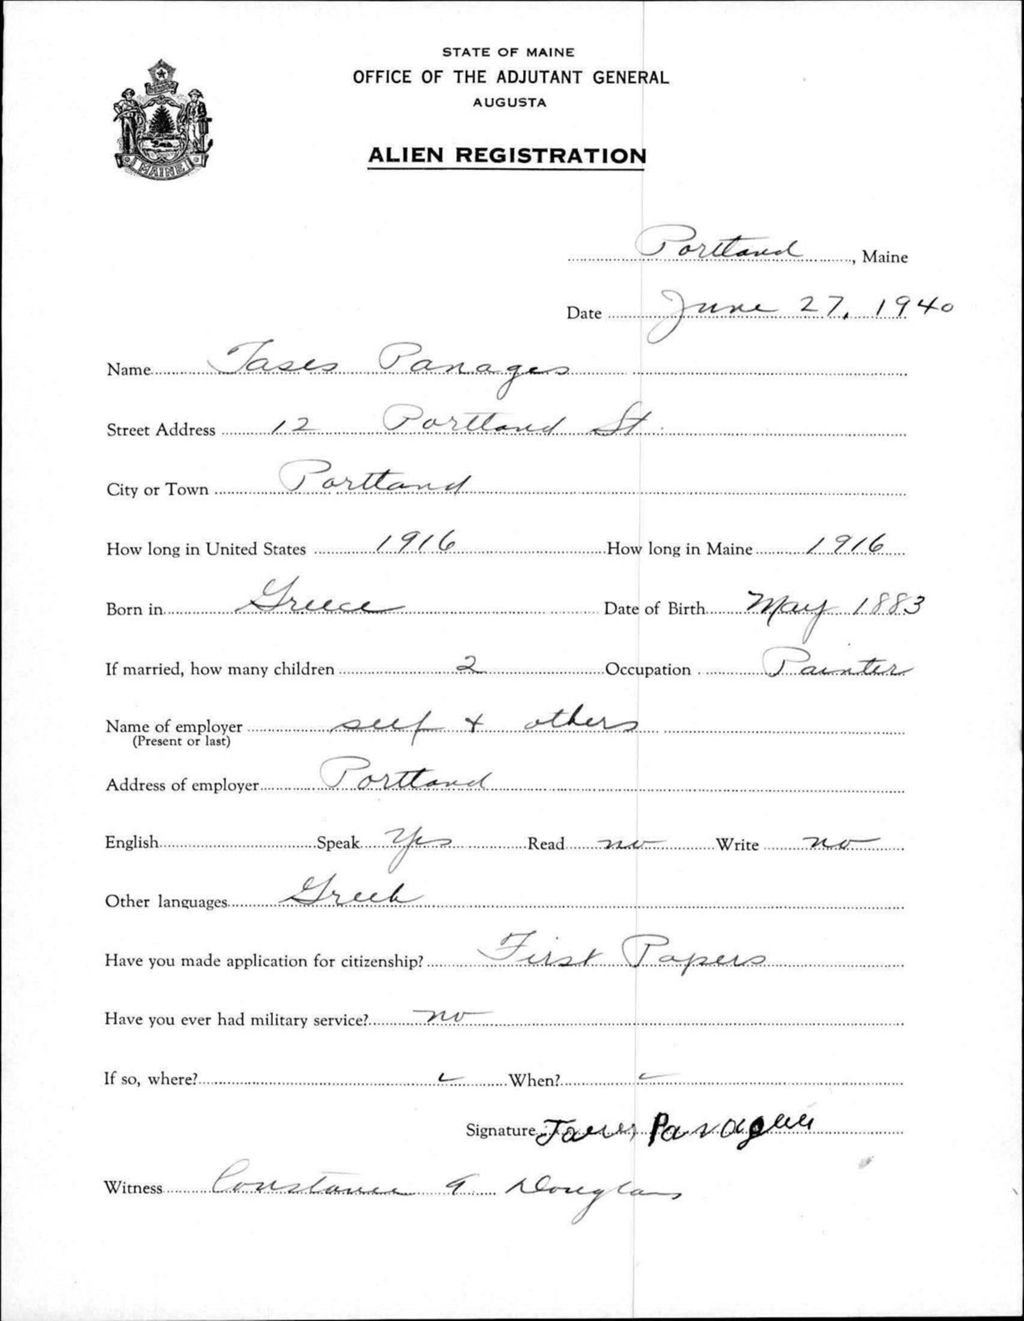 STATE OF MAINE
OFFICE OF THE ADJUTANT GENERAL
AUGUSTA
ALIEN REGISTRATION
MAINE
Portland, Maine
Date June 27, 1940
Name Tases Panages
Street Address 12 Portland St.
City or Town Portland
How long in United States 1916 How long in Maine 1916
Born in Greece Date of Birth May 1883
If married, how many children 2 Occupation Painter
Name of employer self + others
(Present or last)
Address of employer Portland
English Speak Yes Read no Write no
Other languages Greek
Have you made application for citizenship? First Papers
Have you ever had military service? no
If so, where? When?
Signature
Witness Constance A. Douglass